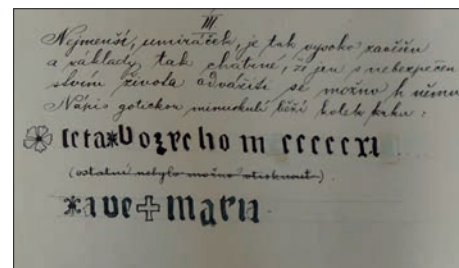 III
Nejmenší, umíráček, je tak vysoko zavěšen
a základy tak chatrné, že jen s nebezpečen
stvím života odvážiti se možno k němu
Nápis gotickou minuskulí běží kolem krku:
leta*bozieho m cccccxi
(ostatní nebylo možno otisknout).
*ave✠maria